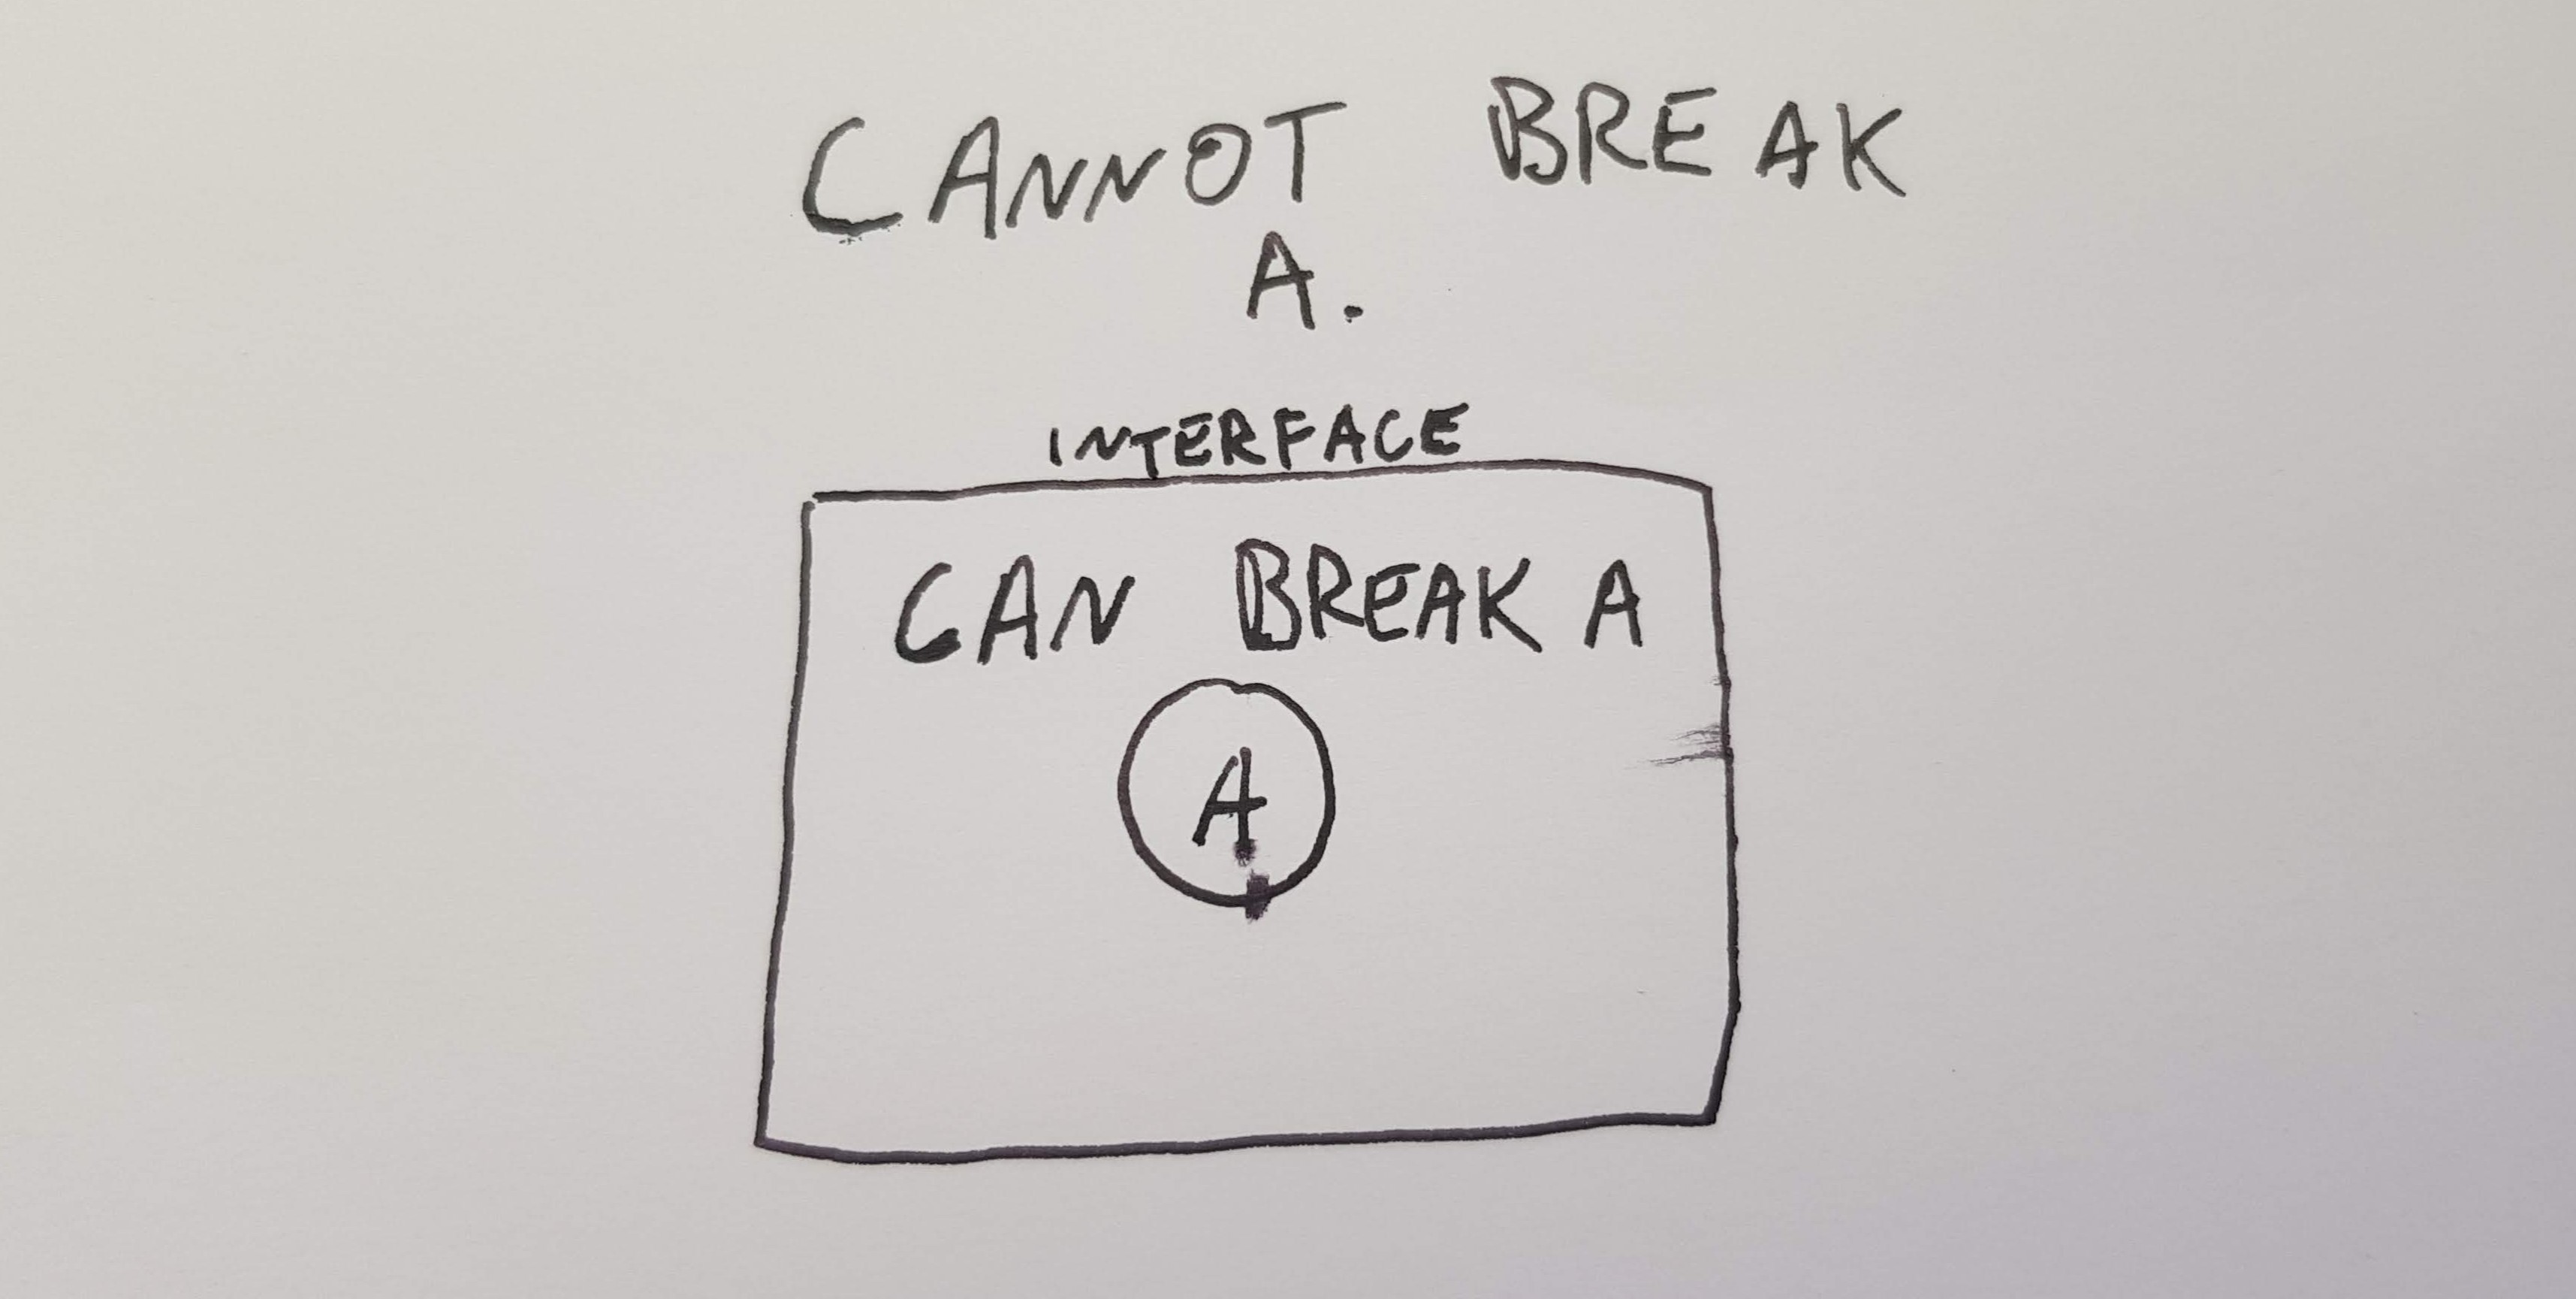 CANNOT BREAK
A.
INTERFACE
CAN BREAK A
A